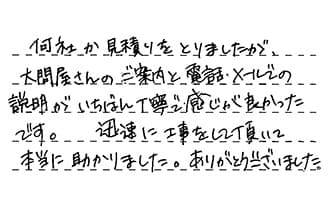 何社か見積りをとりましたが、
大問屋さんのご案内と電話・メールでの
説明がいちばん丁寧で感じが良かった
です。 迅速に工事をして頂いて
本当に助かりました。ありがとうございました。